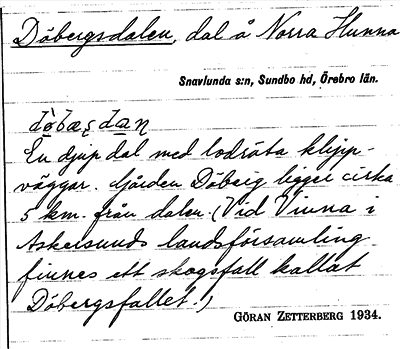 Döbergsdalen, dal å Norra Hunna
Snavlunda s:n, Sundbo hd, Örebro län.
En djup dal med lodräta klipp-
väggar. Gården Döberg ligger cirka
5 km. från dalen. (Vid Vinna i
Askersunds landsförsamling
finnes ett skogsfall kallat
Döbergsfallet.)
GÖRAN ZETTERBERG 1934.